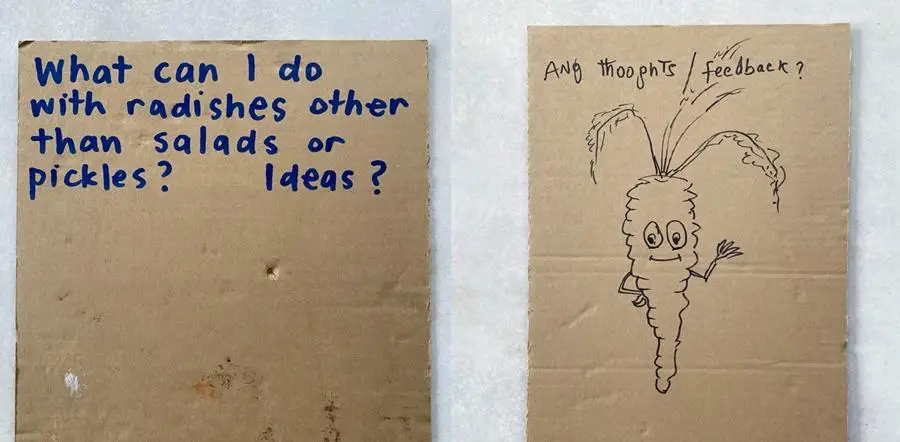 What can I do
with radishes other
than salads or
pickles? Ideas?
Any thooghts / feedback?